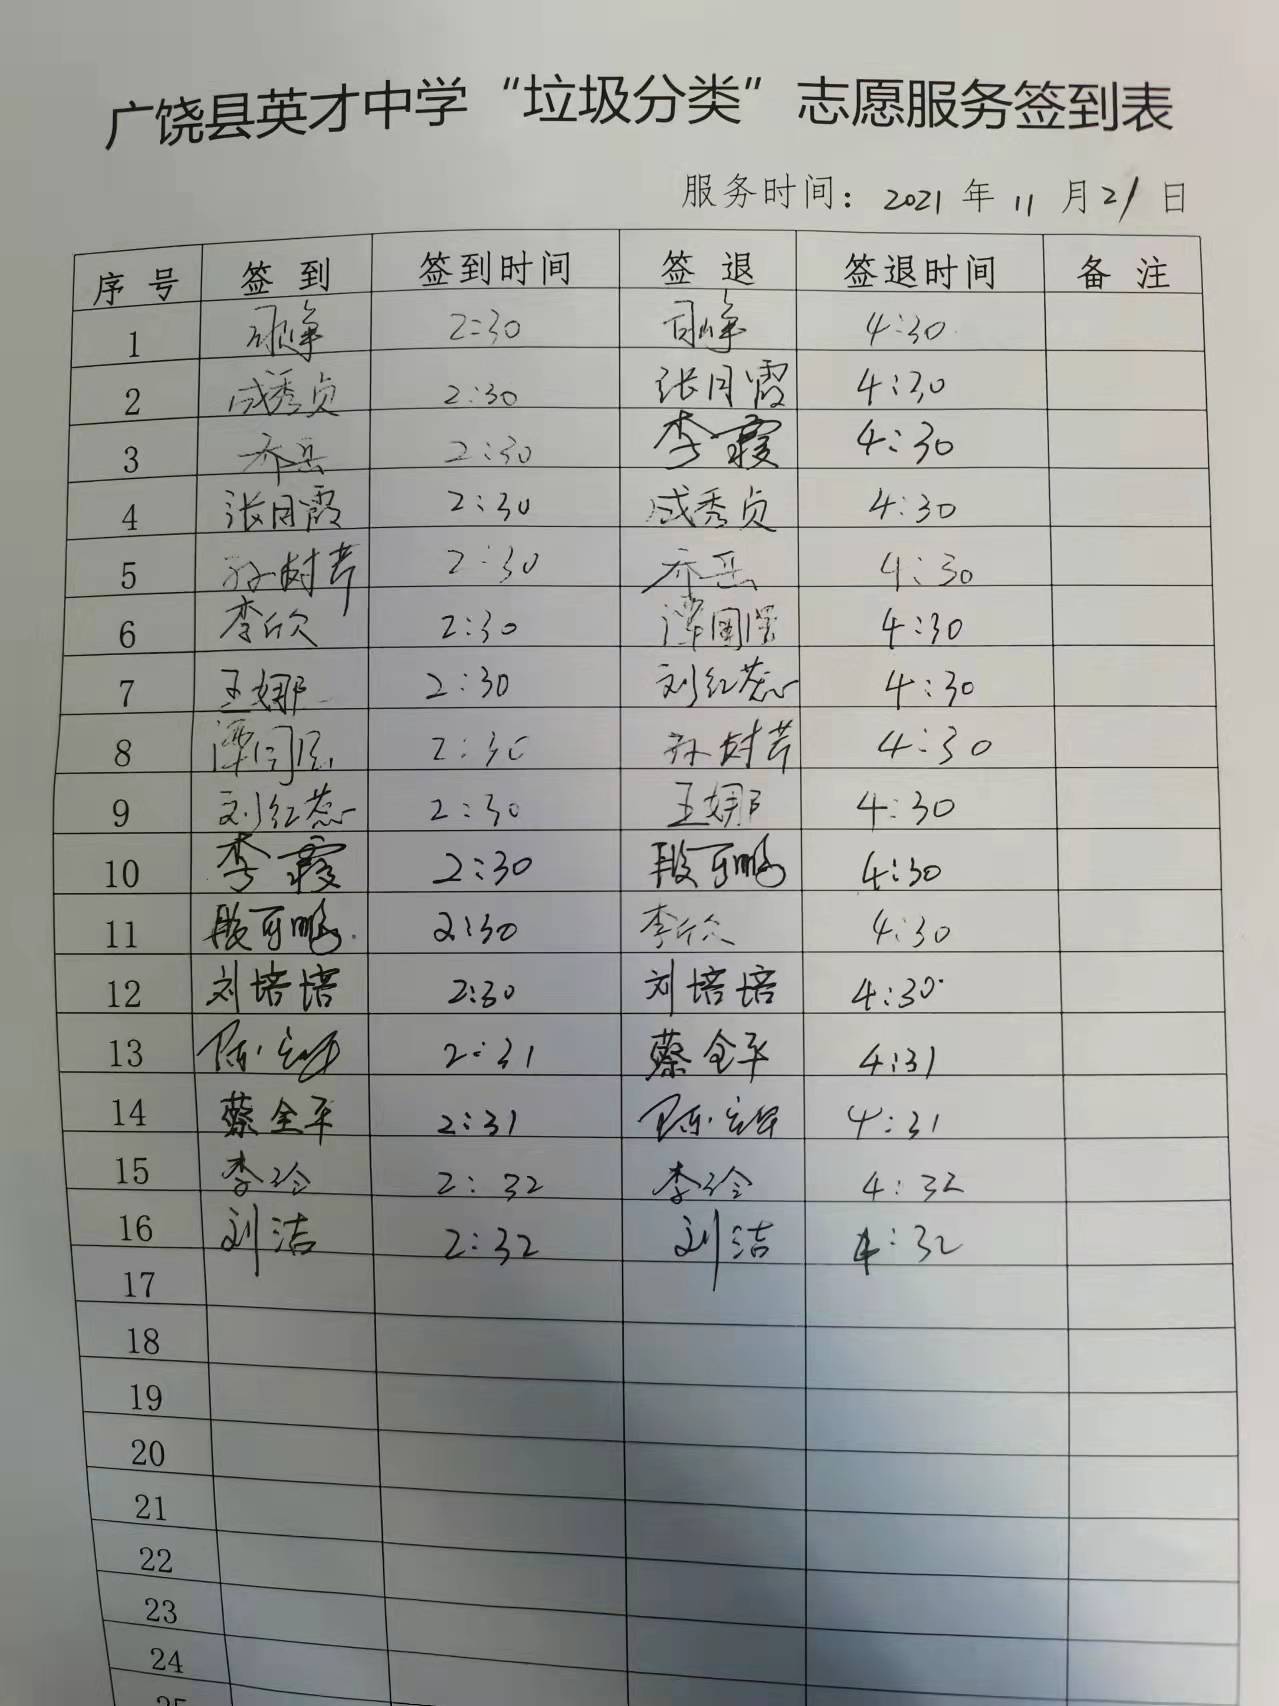 广饶县英才中学“垃圾分类”志愿服务签到表
服务时间：2021年11月21日
序号 签到 签到时间 签退 签退时间 备注
1 2:30 4:30
2 成秀贞 2:30 张月霞 4:30
3 乔岳 2:30 李霞 4:30
4 张月霞 2:30 成秀贞 4:30
5 孙树芹 2:30 乔岳 4:30
6 李欣 2:30 4:30
7 王娜 2:30 刘红蕊 4:30
8 2:30 孙树芹 4:30
9 刘红蕊 2:30 王娜 4:30
10 李霞 2:30 段可鹏 4:30
11 段可鹏 2:30 李欣 4:30
12 刘培培 2:30 刘培培 4:30
13 2:31 蔡全平 4:31
14 蔡全平 2:31 4:31
15 李玲 2:32 李玲 4:32
16 刘洁 2:32 刘洁 4:32
17
18
19
20
21
22
23
24
25